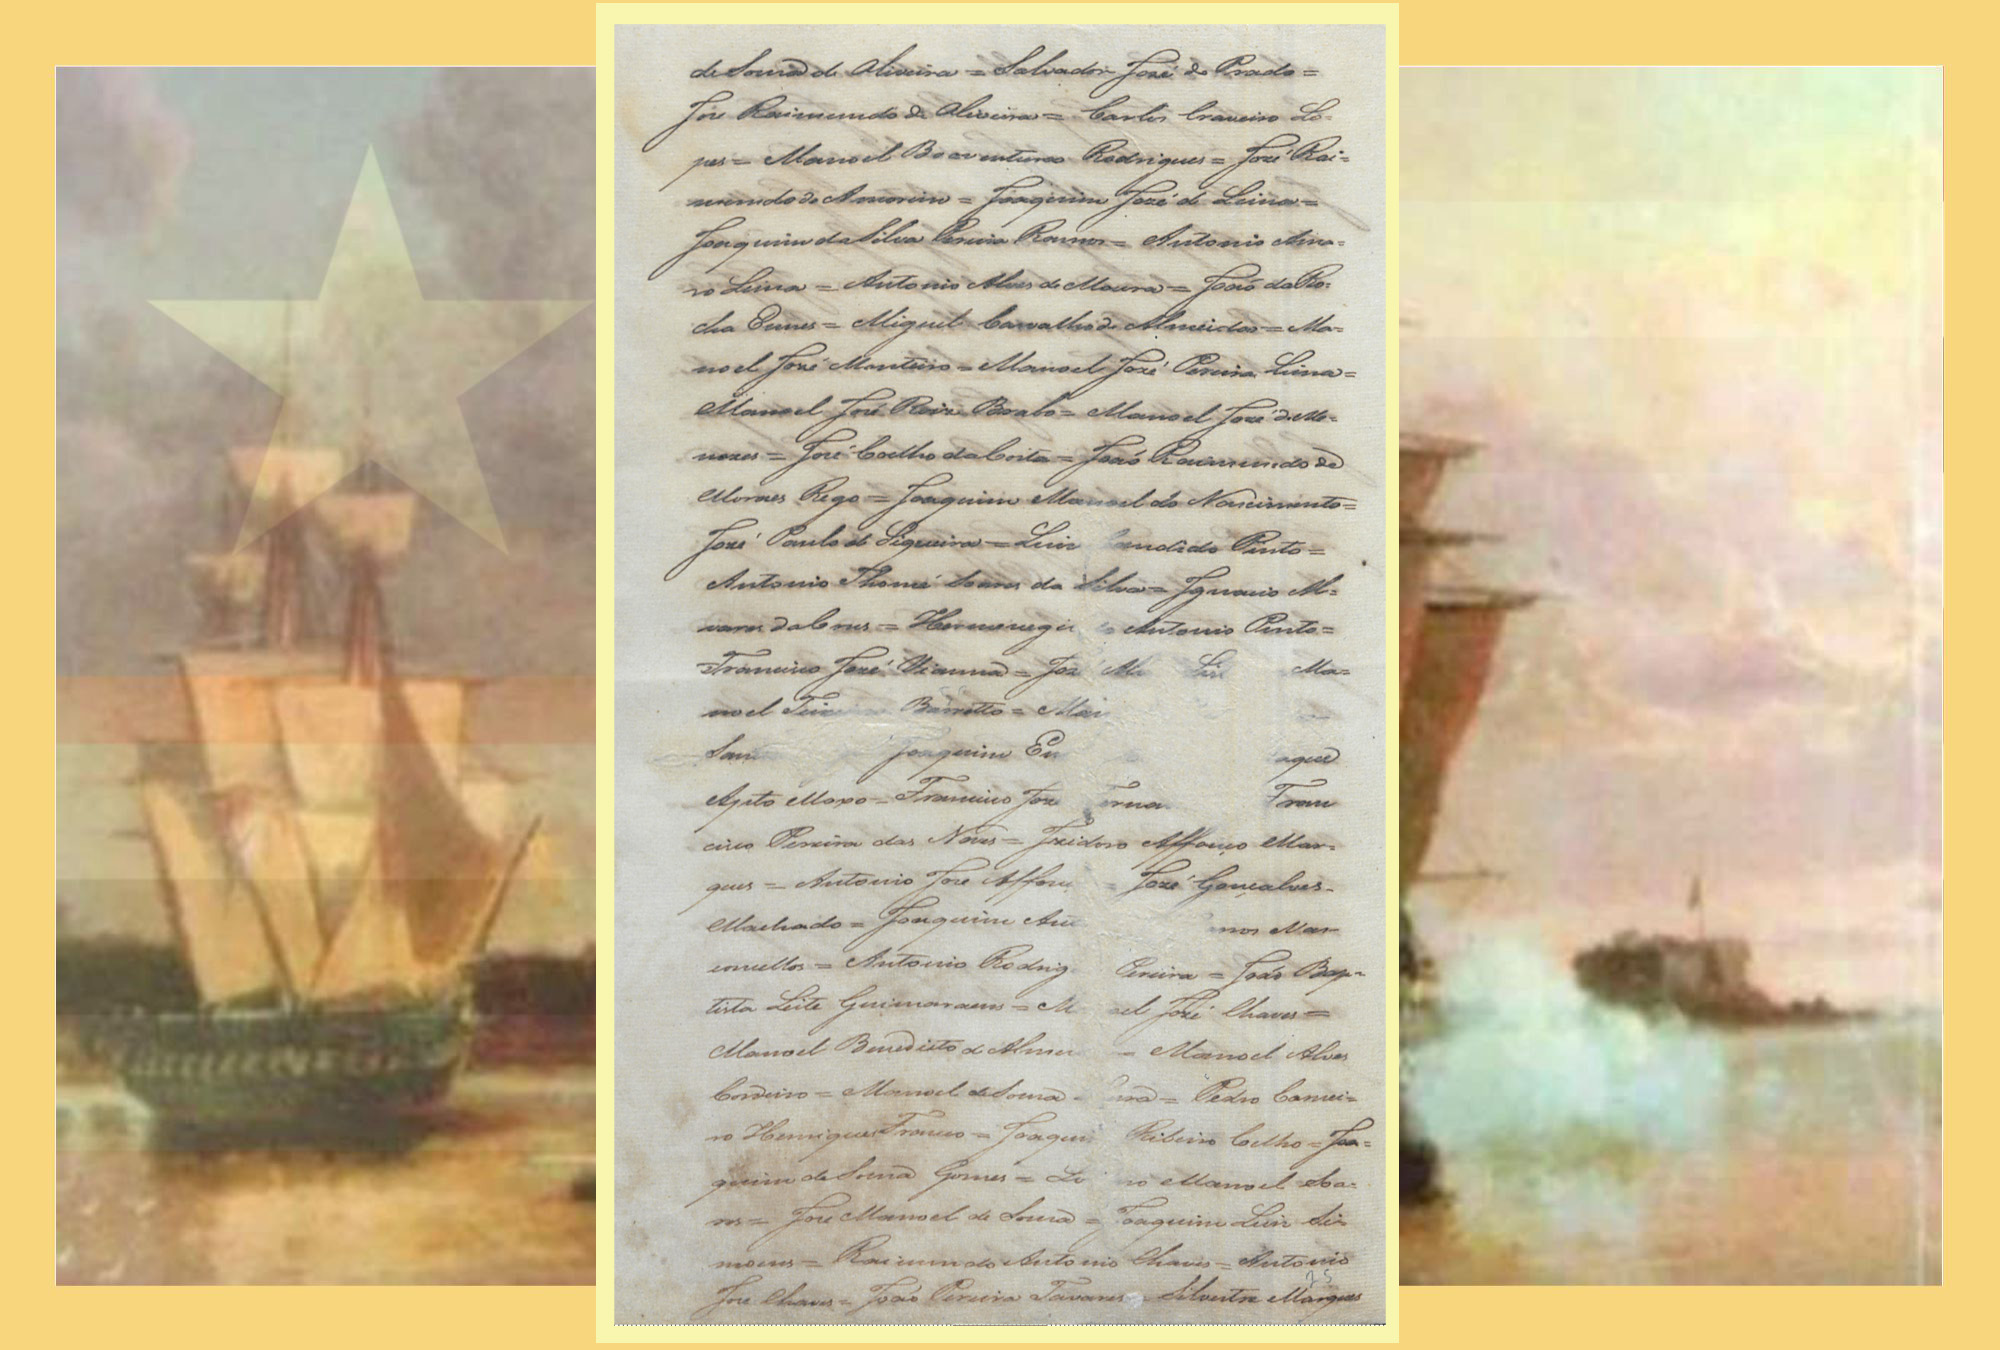 de Souza de Oliveira = Salvador José do Prado =
José Raimundo de Oliveira = Carlos Craveiro Lo-
pes = Manoel Boaventura Rodrigues = José Rai=
mundo de Amorim = Joaquim José de Lima =
Joaquim da Silva Pereira Ramos = Antonio Ama-
ro Lima = Antonio Alves de Moura = João da Ro-
cha = Miguel Carvalho de Almeida = Ma-
noel José Monteiro = Manoel José Pereira Lima =
Manoel José Rabelo = Manoel José de Me-
nezes = José Coelho da Costa = João Raimundo de
Moraes Rego = Joaquim Manoel do Nascimento =
José Paulo de Siqueira = Luiz Candido Pinto =
Antonio Thomé Soares da Silva = Ignacio Al-
vares da Cruz = Antonio Pinto =
Francisco José Vianna = Joz Ma=
noel Barretto = Mai
San Joaquim
= Francisco Joze Fran
cisco Pereira das Neves = Izidoro Affonço Mar-
ques = Antonio Joze Affon = José Gonçalves-
Machado = Joaquim
concellos = Antonio Rodrig Pereira = João Bap-
tista Leite Guimaraens = M el José Chaves =
Manoel Benedito de Almei = Manoel Alves
Cordeiro = Manoel de Souza = Pedro Carnei=
ro Henriques Franco = Joaqui Ribeiro Coelho = Joa=
quim de Souza Gomes = Li no Manoel Soa=
res = Joze Manoel de Souza = Joaquim Luiz Si-
moens = Raimundo Antonio Chaves = Antonio
Joze Chaves = João Pereira Tavares = Silvestre Marques